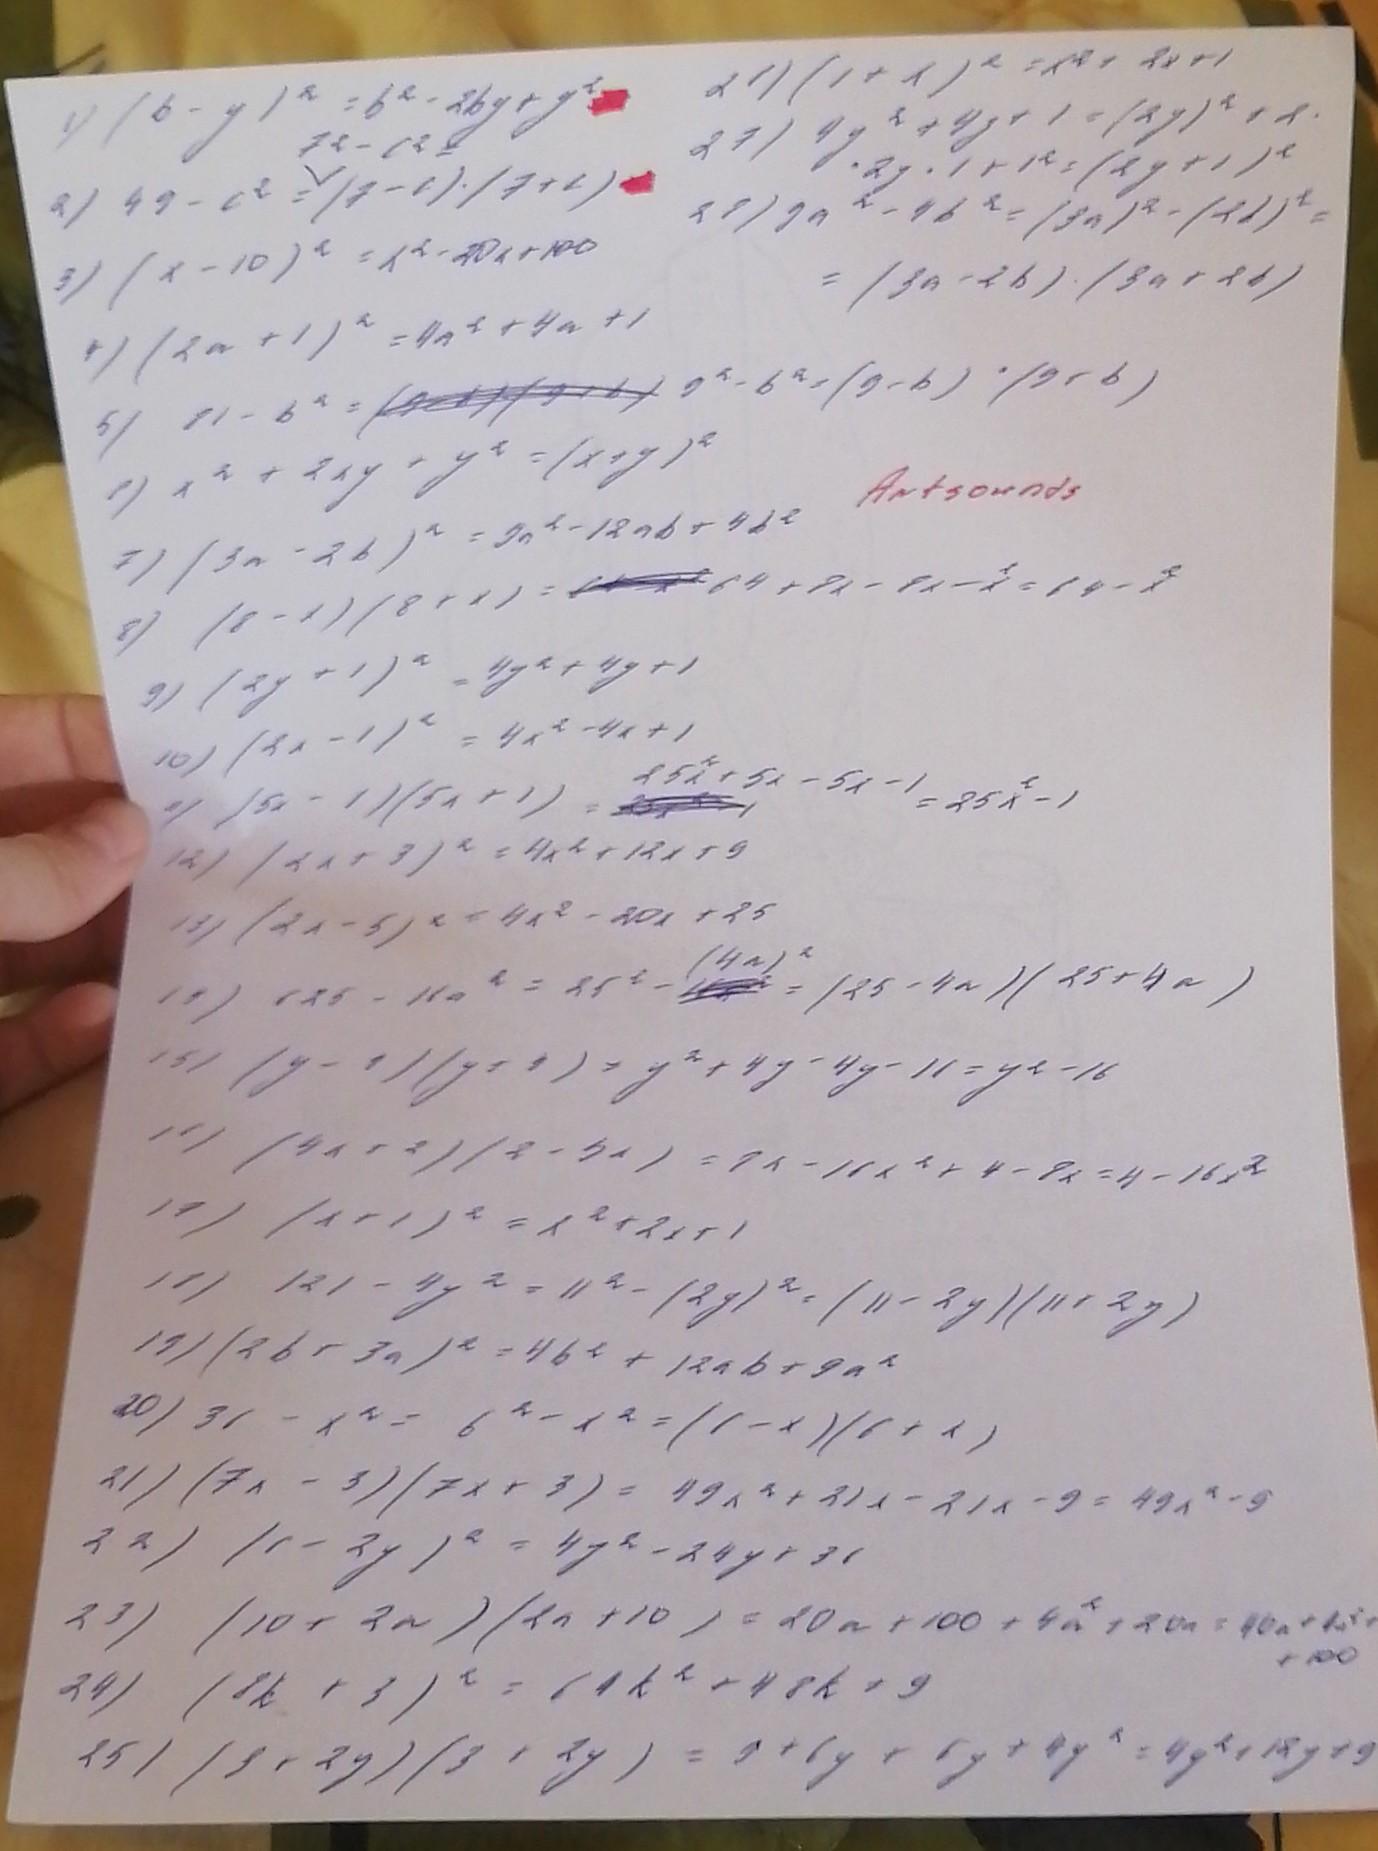 1) (b - y)² = b² - 2by + y²
7² - c² =
2) 49 - c² = (7 - c) · (7 + c)
3) (x - 10)² = x² - 20x + 100
4) (2a + 1)² = 4a² + 4a + 1
5) 81 - b² = 9² - b² = (9 - b) · (9 + b)
6) x² + 2xy + y² = (x + y)²
7) (3a - 2b)² = 9a² - 12ab + 4b²
8) (8 - x)(8 + x) = 64 + 8x - 8x - x² = 64 - x²
9) (2y + 1)² = 4y² + 4y + 1
10) (2x - 1)² = 4x² - 4x + 1
11) (5x - 1)(5x + 1) = 25x² + 5x - 5x - 1 = 25x² - 1
12) (2x + 3)² = 4x² + 12x + 9
13) (2x - 5)² = 4x² - 20x + 25
14) 625 - 16a² = 25² - (4a)² = (25 - 4a)(25 + 4a)
15) (y - 4)(y + 4) = y² + 4y - 4y - 16 = y² - 16
16) (4x + 2)(2 - 4x) = 8x - 16x² + 4 - 8x = 4 - 16x²
17) (x + 1)² = x² + 2x + 1
18) 121 - 4y² = 11² - (2y)² = (11 - 2y)(11 + 2y)
19) (2b + 3a)² = 4b² + 12ab + 9a²
20) 36 - x² = 6² - x² = (6 - x)(6 + x)
21) (7x - 3)(7x + 3) = 49x² + 21x - 21x - 9 = 49x² - 9
22) (6 - 2y)² = 4y² - 24y + 36
23) (10 + 2a)(2a + 10) = 20a + 100 + 4a² + 20a = 40a + 4a² +
+ 100
24) (8k + 3)² = 64k² + 48k + 9
25) (3 + 2y)(3 + 2y) = 9 + 6y + 6y + 4y² = 4y² + 12y + 9
26) (1 + x)² = x² + 2x + 1
27) 4y² + 4y + 1 = (2y)² + 2 ·
· 2y · 1 + 1² = (2y + 1)²
28) 9a² - 4b² = (3a)² - (2b)² =
= (3a - 2b) · (3a + 2b)
Artsounds